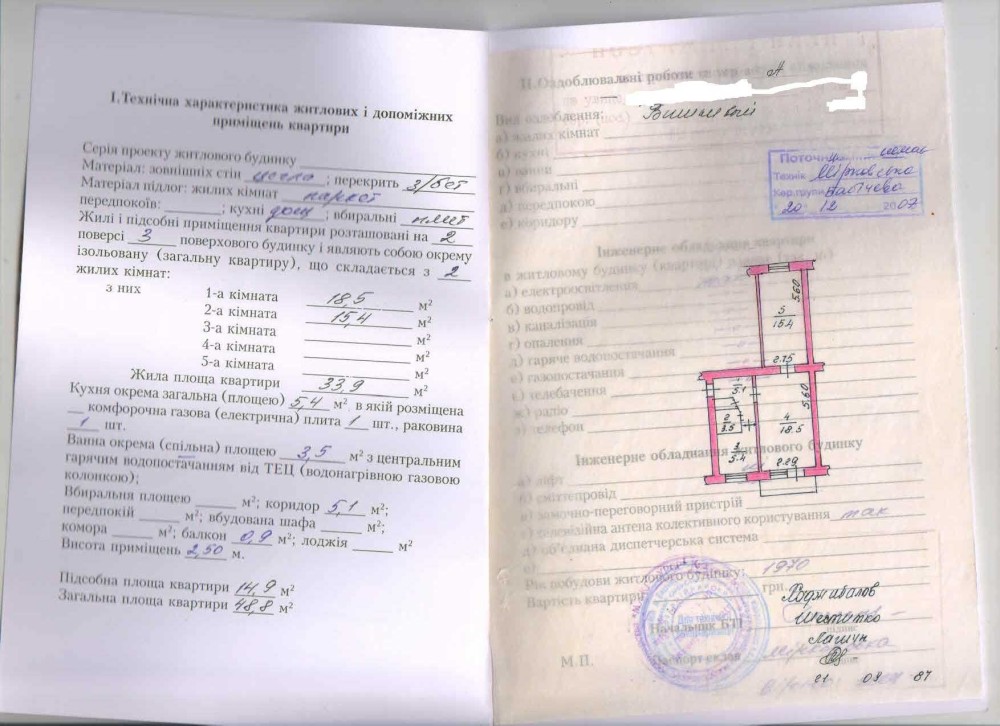 І. Технічна характеристика житлових і допоміжних
приміщень квартири
Серія проекту житлового будинку
Матеріал: зовнішніх стін цегла ; перекрить з/бет
Матеріал підлог: жилих кімнат паркет
передпокоїв: ; кухні дощ ; вбиральні плит
Жилі і підсобні приміщення квартири розташовані на 2
поверсі 3 поверхового будинку і являють собою окрему
ізольовану (загальну квартиру), що складається з 2
жилих кімнат:
з них 1-а кімната 18,5 м²
2-а кімната 15,4 м²
3-а кімната м²
4-а кімната м²
5-а кімната м²
Жила площа квартири 33,9 м²
Кухня окрема загальна (площею) 5,4 м² в якій розміщена
комфорочна газова (електрична) плита 1 шт., раковина
1 шт.
Ванна окрема (спільна) площею 3,5 м² з центральним
гарячим водопостачанням від ТЕЦ (водонагрівною газовою
колонкою);
Вбиральня площею м²; коридор 5,1 м²;
передпокій м²; вбудована шафа м²;
комора м²; балкон 0,9 м²; лоджія м²
Висота приміщень 2,50 м.
Підсобна площа квартири 14,9 м²
Загальна площа квартири 48,8 м²
ІІ. Оздоблювальні роботи
Вид оздоблення:
а) жилих кімнат
б) кухні
в) ванни
г) вбиральні
д) передпокою
е) коридору
Поточні
Технік Мірковська
Кер.групи
20 12 2007
Інженерне обладнання квартири
в житловому будинку (квартирі)
а) електроосвітлення
б) водопровід
в) каналізація
г) опалення
д) гаряче водопостачання
е) газопостачання
є) телебачення
ж) радіо
з) телефон
5.60
5
15.4
2.75
1
5.1
2
3.5
3
5.4
4
18.5
5.60
2.29
Інженерне обладнання житлового будинку
а) ліфт
б) сміттєпровід
в) замочно-переговорний пристрій
г) телевізійна антена колективного користування так
д) об'єднана диспетчерська система
е)
Рік побудови житлового будинку: 1970
Вартість квартири грн.
Начальник БТІ
підпис
М.П. Паспорт склав
21 08 87